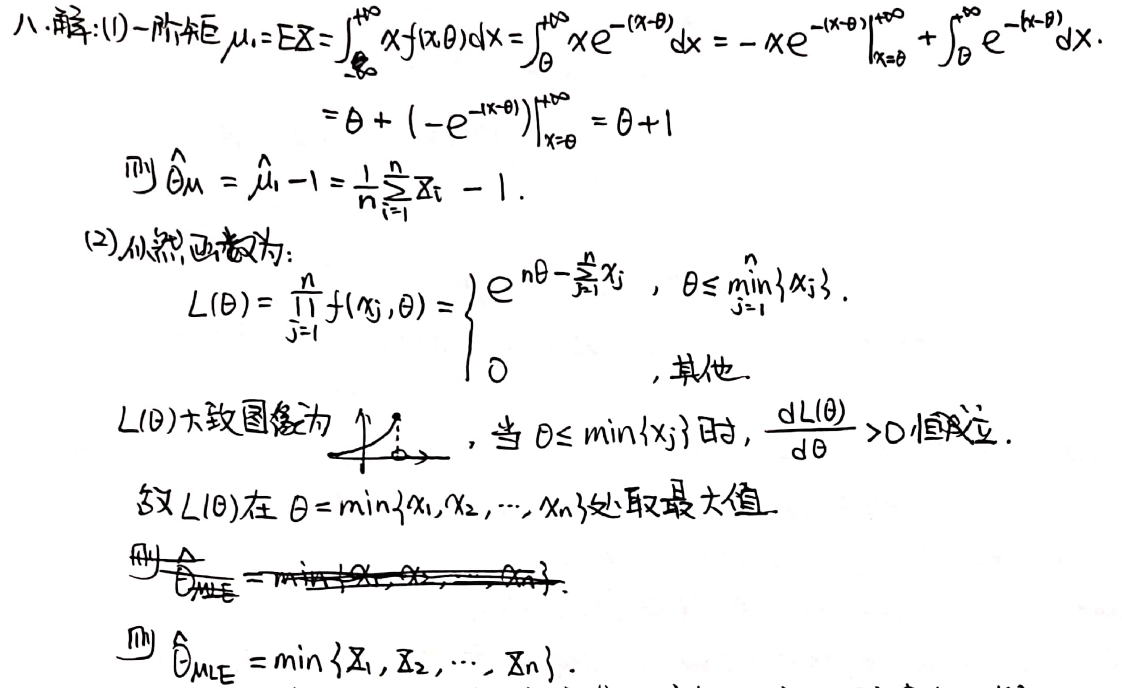 八.解:(1)一阶矩 μ₁=EX=∫_{-∞}^{+∞} xf(x,θ)dx=∫_θ^{+∞} xe^{-(x-θ)}dx = -xe^{-(x-θ)}|_{x=θ}^{+∞} + ∫_θ^{+∞} e^{-(x-θ)}dx.
= θ + (-e^{-(x-θ)})|_{x=θ}^{+∞} = θ+1
则 θ̂_M = μ̂₁-1 = 1/n ∑_{i=1}^{n} X_i - 1.
(2)似然函数为:
L(θ) = ∏_{j=1}^{n} f(x_j,θ) = { e^{nθ-∑_{j=1}^{n} x_j} , θ≤ min_{j=1}^{n}{x_j}.
0 , 其他.
L(θ)大致图像为 , 当 θ≤ min{x_j}时, dL(θ)/dθ >0恒成立.
故L(θ)在 θ=min{x₁,x₂,…,x_n}处取最大值
则 θ̂_{MLE} = min{x₁,x₂,…,x_n}.
则 θ̂_{MLE} = min{X₁,X₂,…,X_n}.